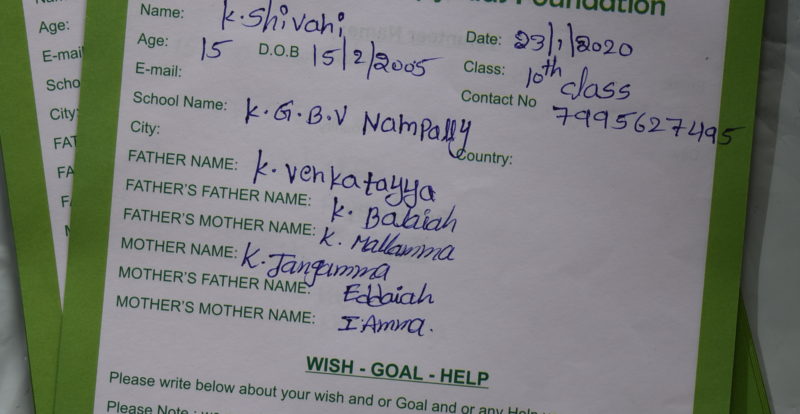 Foundation
Name: K. Shivani Date: 23/1/2020
Age: 15 D.O.B 15/2/2005 Class: 10th class
E-mail: Contact No 7995627495
School Name: K.G.B.V Nampally
City: Country:
FATHER NAME: K. Venkatayya
FATHER'S FATHER NAME: K. Balaiah
FATHER'S MOTHER NAME: K. Mallamma
MOTHER NAME: K. Jangamma
MOTHER'S FATHER NAME: Eddaiah
MOTHER'S MOTHER NAME: I. Amma.
WISH - GOAL - HELP
Please write below about your wish and or Goal and or any Help
Please Note :
Age:
E-mail
Scho
City
FAT
FA